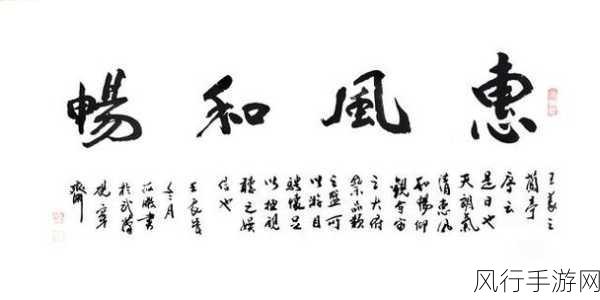 惠風和暢
王羲之
蘭亭
序云
是日也
天朗氣
清惠風
和暢仰
觀宇宙
之大俯
察品類
之盛可
以游目
騁懷足
以極視
聽之娛
信也
月
書
於武漢
齋
风行手游网